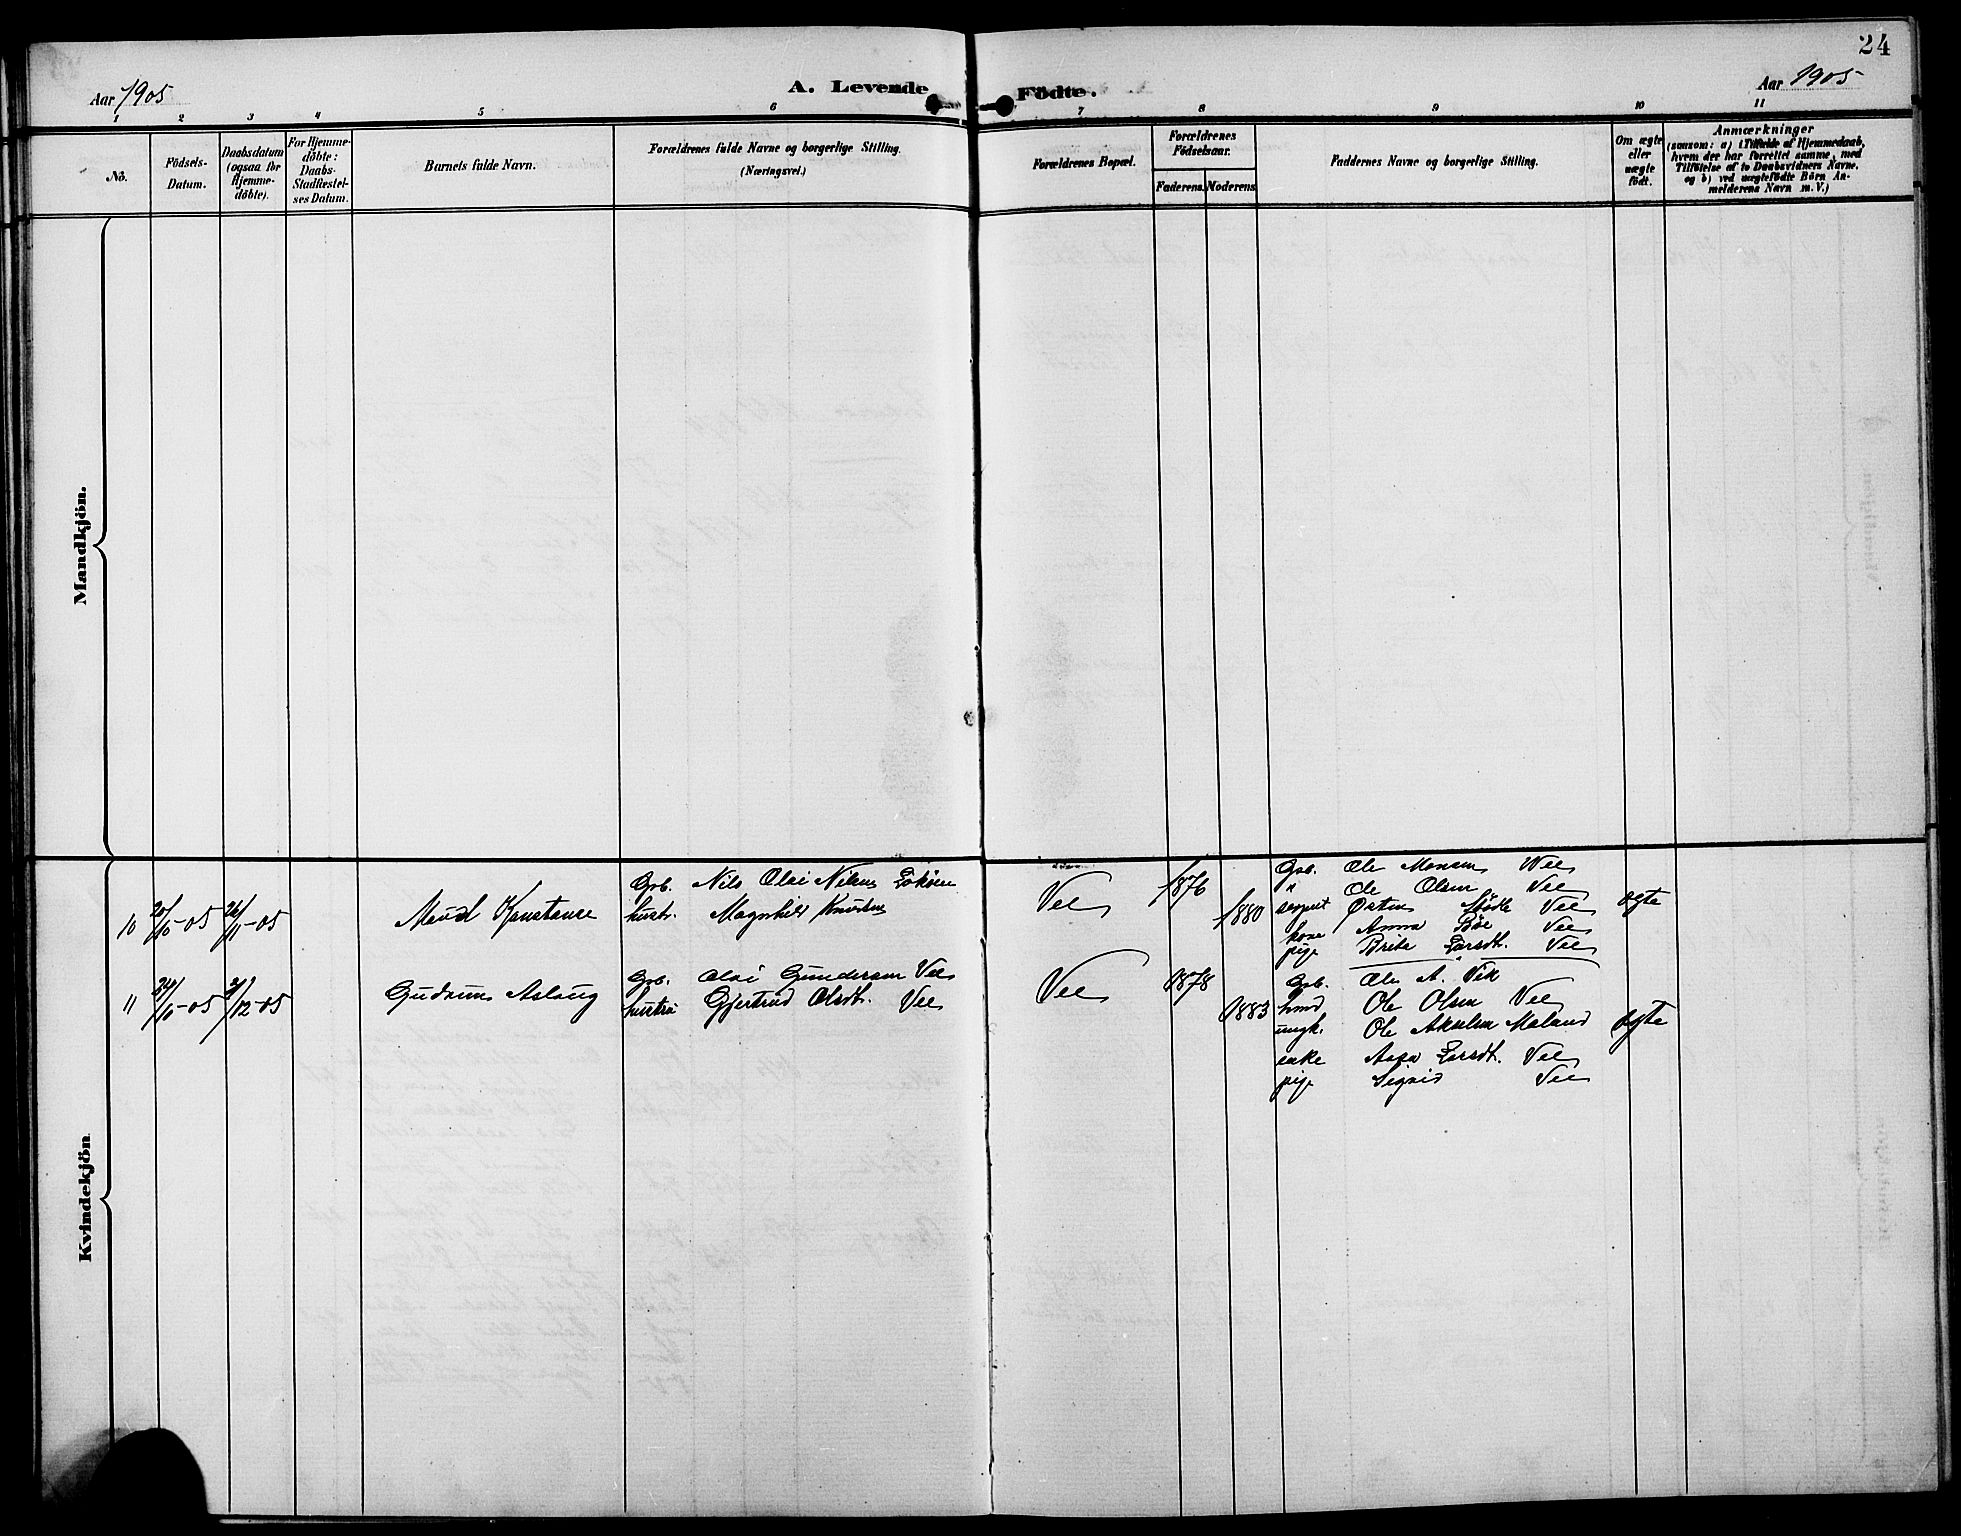 24
Aar 1905
A. Levende Födte.
Aar 1905
1 2 3 4 5 6 7 8 9 10 11
No.
Födsels-
Datum.
Daabsdatum
(ogsaa for
Hjemme-
döbte).
For Hjemme-
döbte:
Daabs-
Stadfæstel-
ses Datum.
Barnets fulde Navn.
Forældrenes fulde Navne og borgerlige Stilling.
(Næringsvei.)
Forældrenes Bopæl.
Forældrenes
Födselsaar.
Faderens. Moderens.
Faddernes Navne og borgerlige Stilling.
Om ægte
eller
uægte
födt.
Anmærkninger
(saasom: a) i Tilfælde af Hjemmedaab,
hvem der har forrettet samme, med
Tilföielse af to Daabsvidners Navne.
og b) ved uægtefödte Börn An-
melderens Navn m. V.)
Mandkjön.
Kvindekjön
10
20/10-05
26/11-05
Konstanse
Grb. Nils Olai Nilsen
hustr. Magnhild Knudsen
Vee
1876
1880
Grb. Ole Monsen Vee
" Ole Olsen Vee
Østen Vee
kone Anna Bøe Vee
pige Brita Larsdt. Vee
ægte
11
24/10-05
31/12-05
Gudrun Aslaug
Grb. Olai Gundersen Vee
hustru Gjertrud Olsdt. Vee
Vee
1878
1883
Grb. Ole A. Vik
Ole Olsen Vee
ungk. Ole Akselsen Maland
enke Aasa Larsdt. Vee
pige Sigrid Vee
ægte